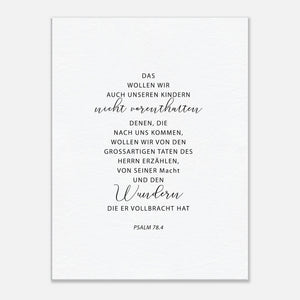 DAS
WOLLEN WIR
AUCH UNSEREN KINDERN
nicht vorenthalten
DENEN, DIE
NACH UNS KOMMEN,
WOLLEN WIR VON DEN
GROSSARTIGEN TATEN DES
HERRN ERZÄHLEN,
VON SEINER Macht
UND DEN
Wundern
DIE ER VOLLBRACHT HAT
PSALM 78.4